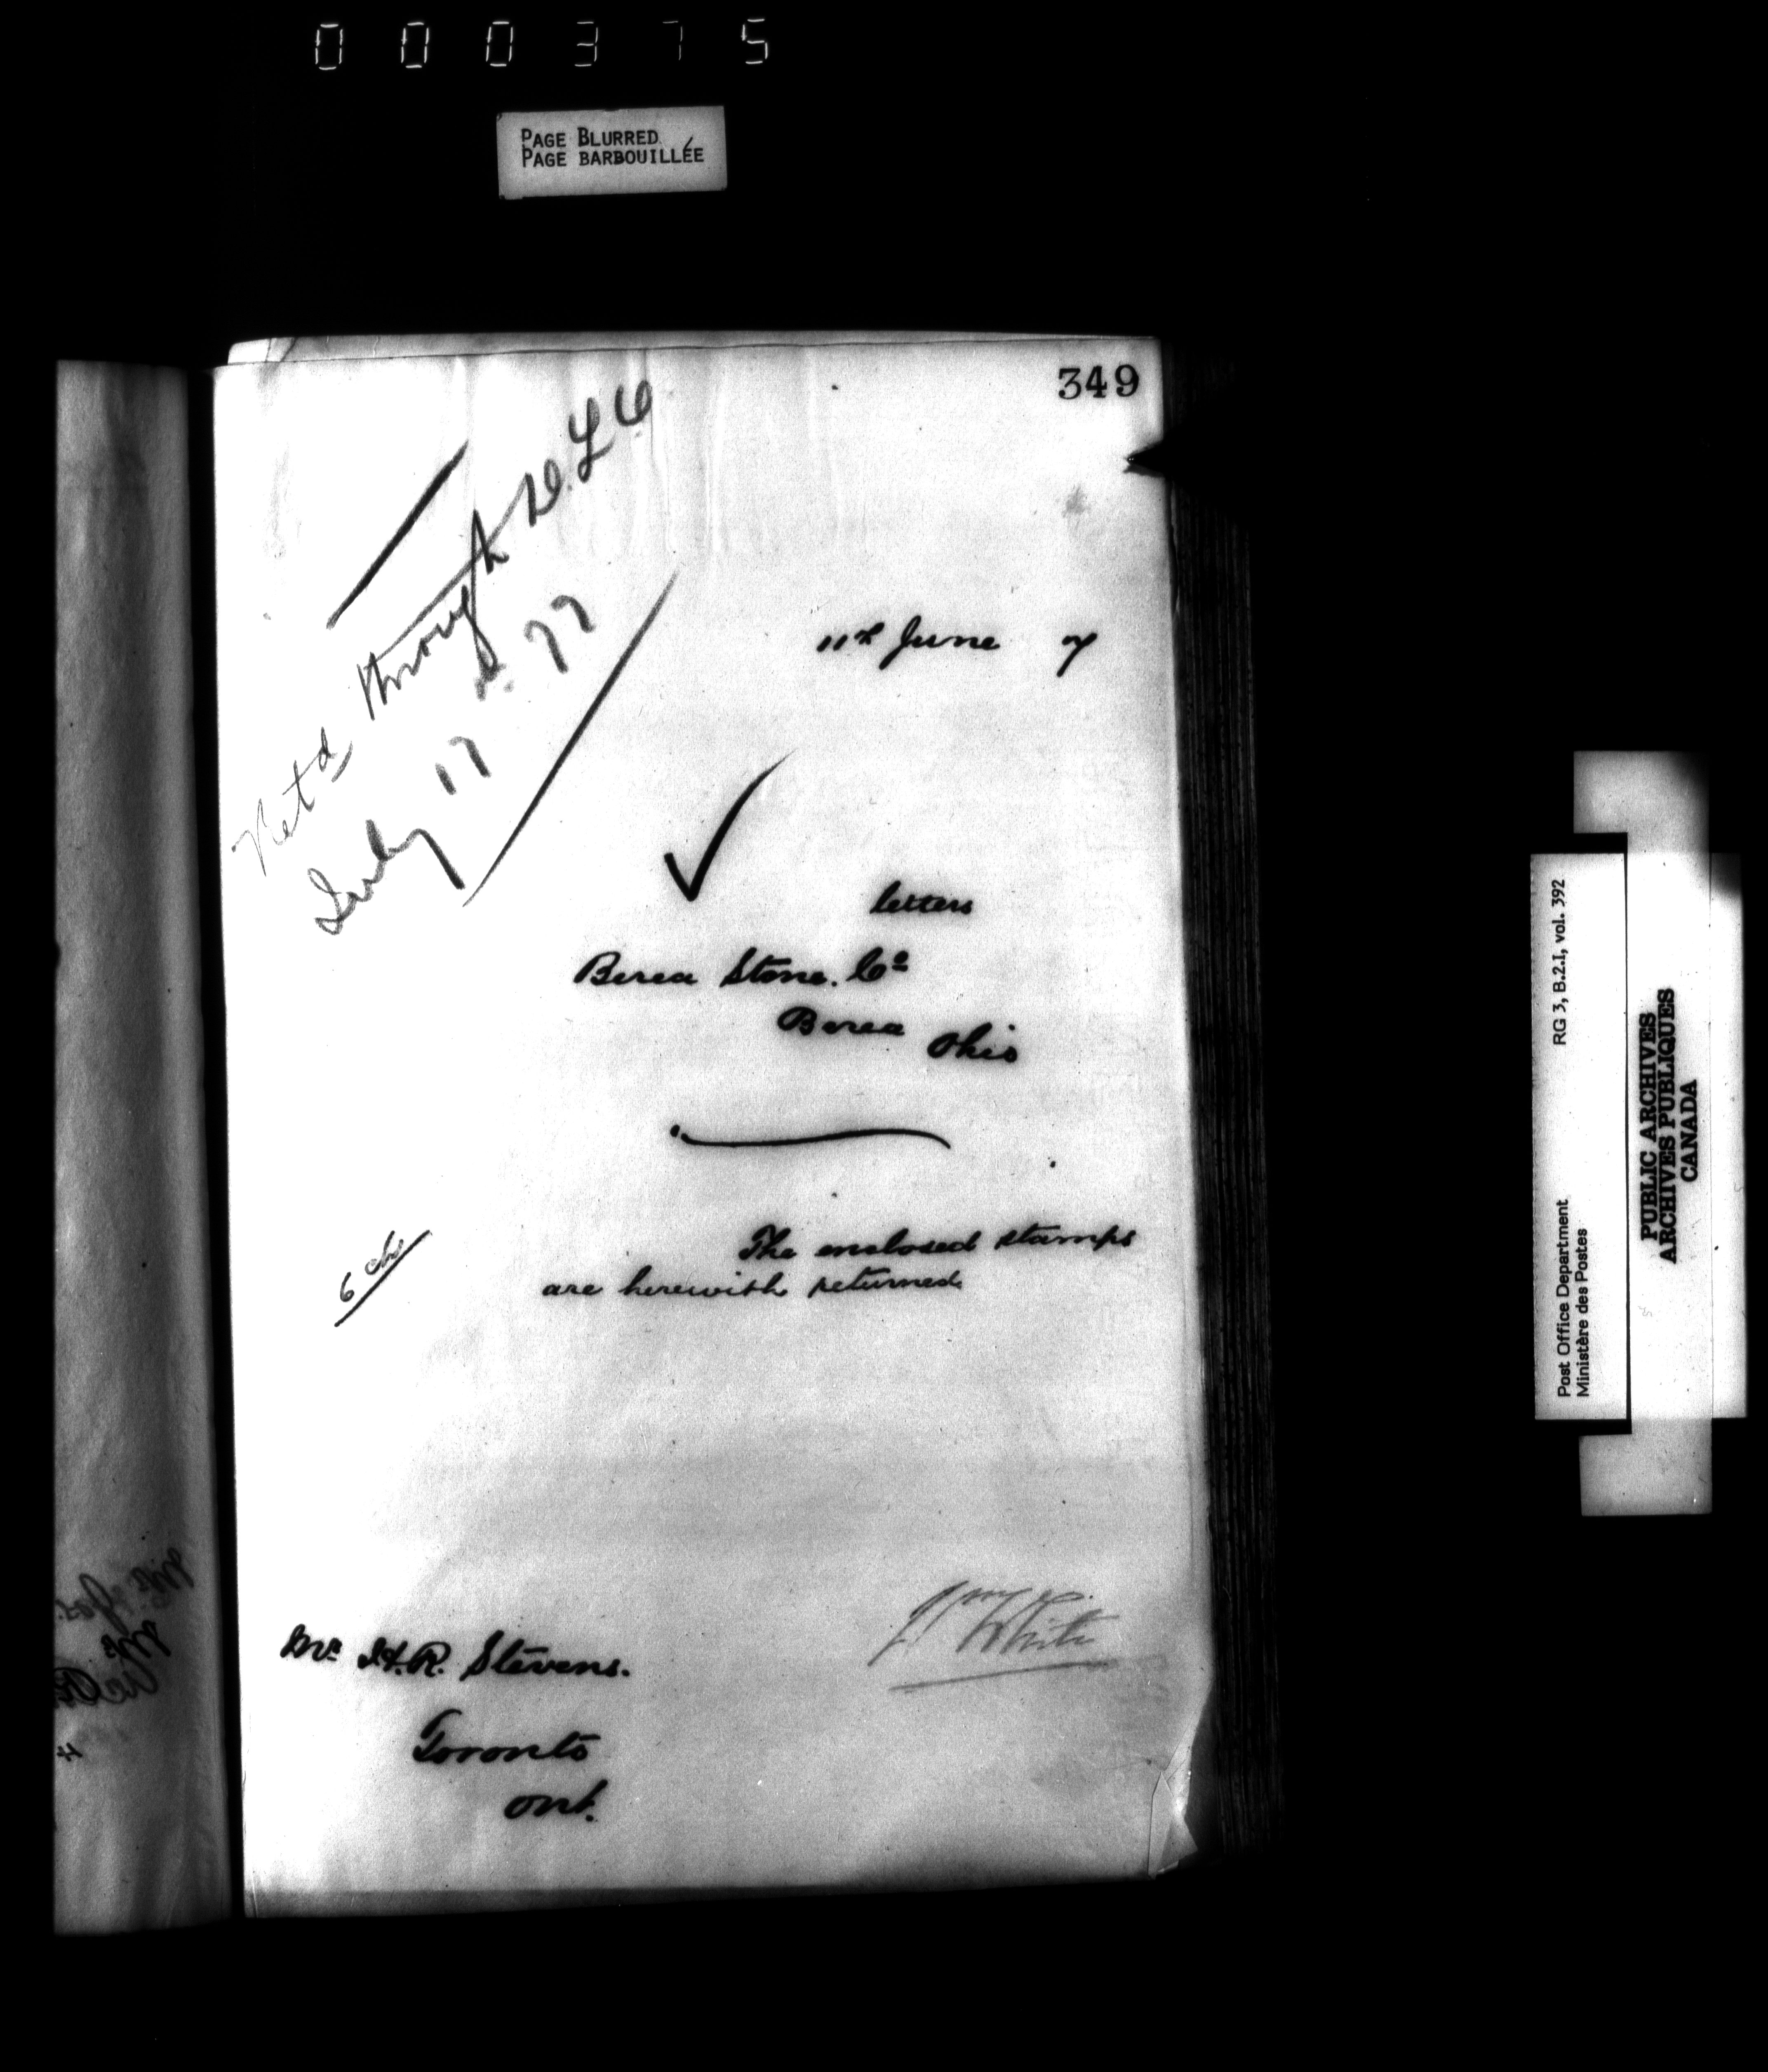 000375
PAGE BLURRED
PAGE BARBOUILLÉE
349
Retd through D.L.O.
July 17 77
11th June 7
letters
Berea Stone. Co
Berea
Ohio
The enclosed stamps
are herewith returned.
6 cts
Wm White
Mr. H.R. Stevens.
Toronto
Ont.
Post Office Department RG 3, B.2.I, vol. 392
Ministère des Postes
PUBLIC ARCHIVES
ARCHIVES PUBLIQUES
CANADA